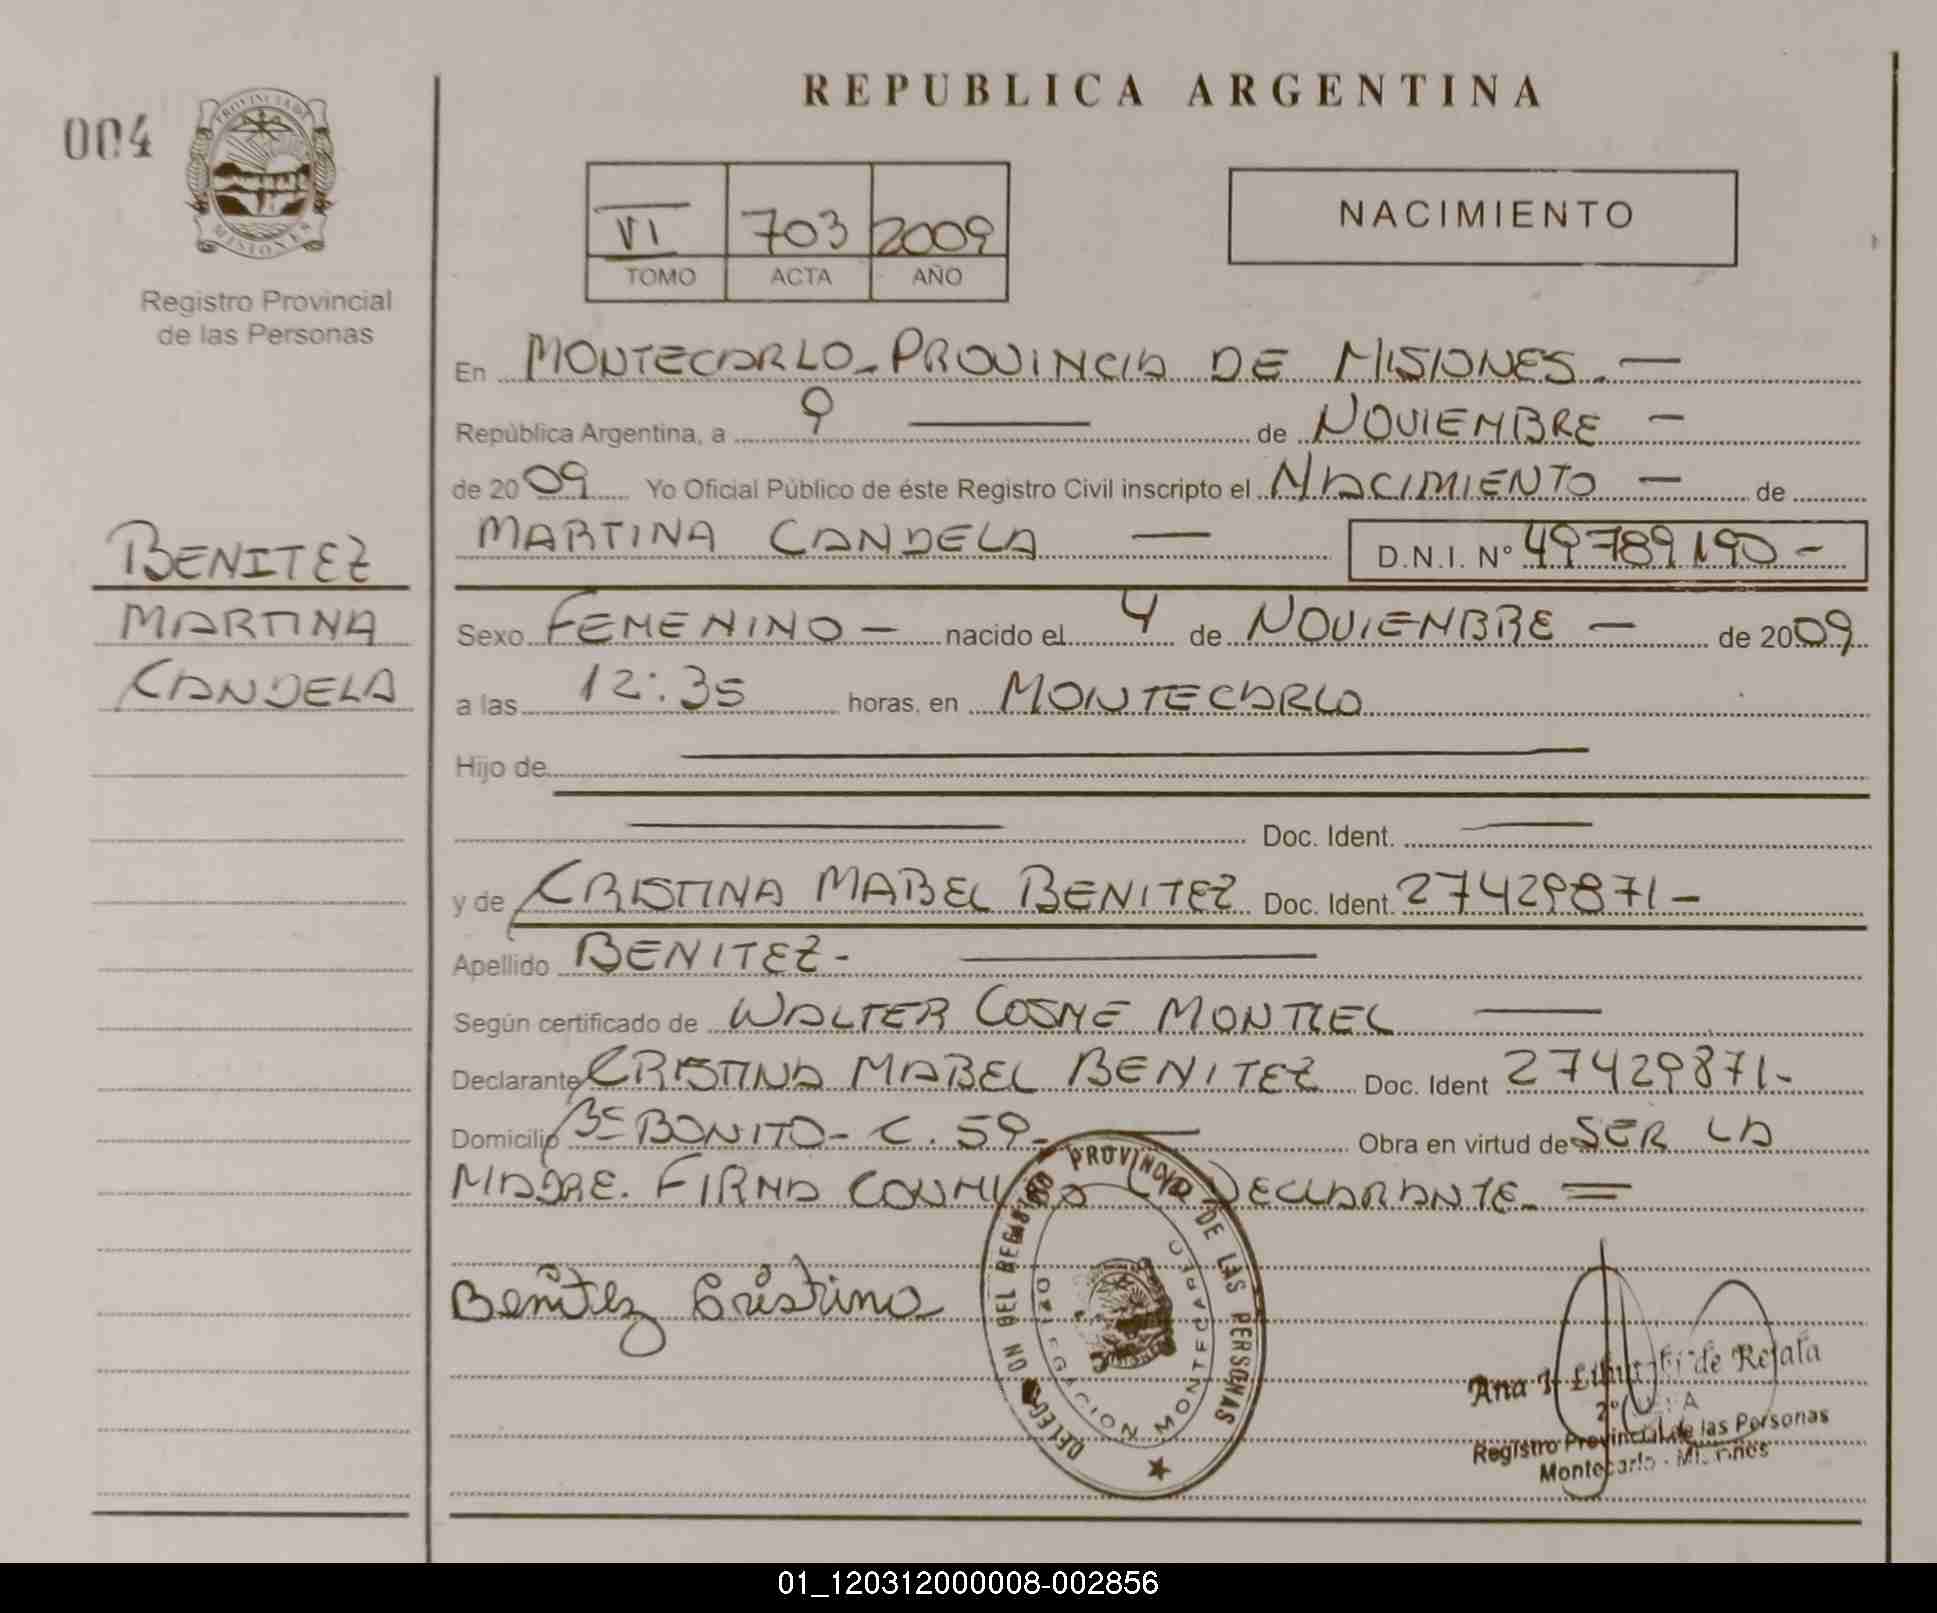 REPUBLICA ARGENTINA
004
PROVINCIA DE MISIONES
Registro Provincial
de las Personas
VI 703 2009
TOMO ACTA AÑO
NACIMIENTO
En MONTECARLO - PROVINCIA DE MISIONES. —
República Argentina, a 9 — de NOVIEMBRE —
de 2009 Yo Oficial Público de éste Registro Civil inscripto el NACIMIENTO — de
MARTINA CANDELA — D.N.I. N° 49789190 -
BENITEZ
MARTINA
CANDELA
Sexo FEMENINO — nacido el 4 de NOVIEMBRE — de 2009
a las 12:35 horas, en MONTECARLO
Hijo de —
— Doc. Ident. —
y de CRISTINA MABEL BENITEZ Doc. Ident. 27429871 -
Apellido BENITEZ - —
Según certificado de WALTER COSME MONTIEL —
Declarante CRISTINA MABEL BENITEZ Doc. Ident 27429871 -
Domicilio Bº BONITO - C. 59 - — Obra en virtud de SER LA
MADRE. FIRMA CONMIGO LA DECLARANTE. =
Benítez Cristina
DELEGACION DEL REGISTRO PROVINCIAL DE LAS PERSONAS
DELEGACION MONTECARLO
Ana de Rejala
Registro Provincial de las Personas
Montecarlo - Misiones
01_120312000008-002856